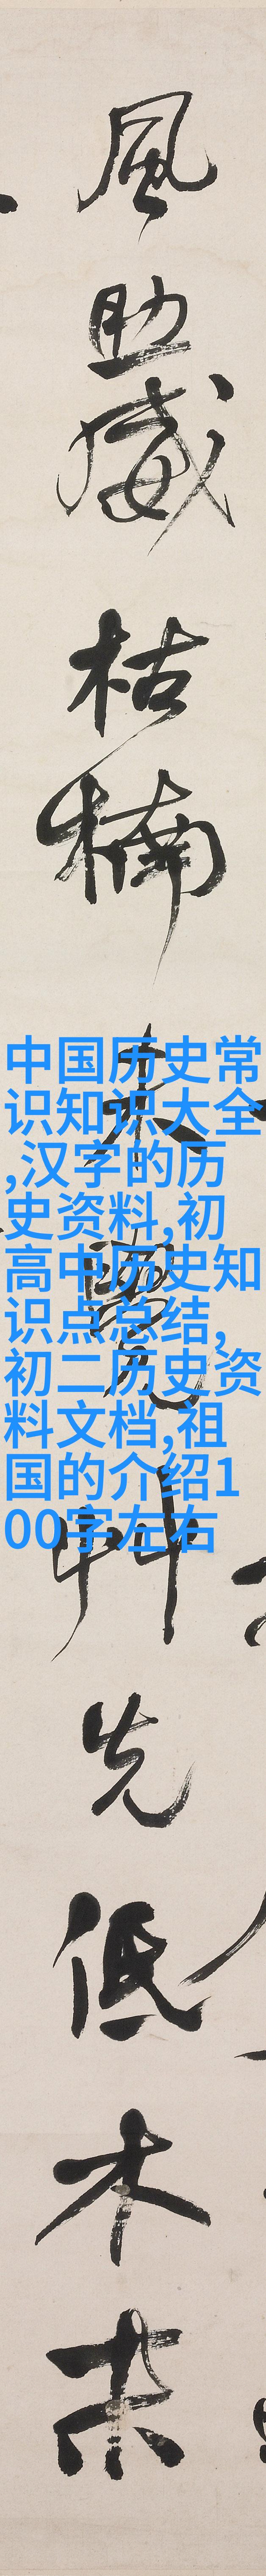 風助威枯楠未覺艸先低木末
中国历史常
识知识大全
,汉字的历
史资料,初
高中历史知
识点总结,
初二历史资
料文档,祖
国的介绍1
00字左右